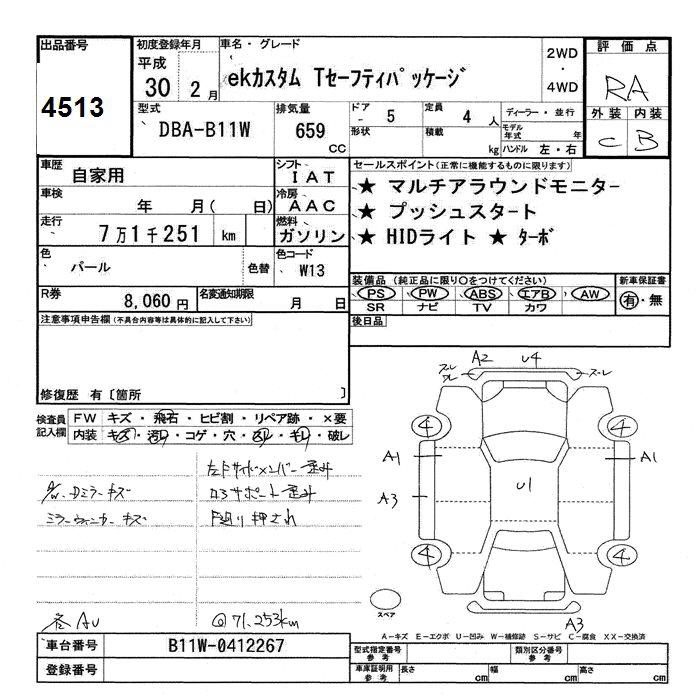 出品番号
4513
初度登録年月
平成
30年2月
車名・グレード
ekカスタム Tセーフティパッケージ
2WD
・
4WD
評価点
RA
外装 内装
C B
型式
DBA-B11W
排気量
659
CC
ドア
5
形状
定員
4人
積載
kg
ディーラー・並行
モデル年式 年
ハンドル 左・右
車歴
自家用
シフト
IAT
車検
年 月( 日)
冷房
AAC
走行
7万1千251 km
燃料
ガソリン
色
パール
色替
色コード
W13
R券
8,060円
名変通知期限
月 日
セールスポイント(正常に機能するものに限ります)
★ マルチアラウンドモニター
★ プッシュスタート
★ HIDライト ★ ターボ
装備品(純正品に限り○をつけてください)
PS PW ABS エアB AW
SR ナビ TV カワ
新車保証書
有・無
後日品
注意事項申告欄(不具合内容等は具体的に記入して下さい)
修復歴 有〔箇所 〕
検査員記入欄
FW キズ・飛石・ヒビ割・リペア跡・×要
内装 キズ・汚レ・コゲ・穴・スレ・キレ・破レ
左Fサイドメンバー歪み
ロアサポート歪み
F廻り押され
ミラーウィンカーキズ
AU
@71,253km
A2 U4
4 4
A1 A1
U1
A3
4 4
スペア
A3
A-キズ E-エクボ U-凹み W-補修跡 S-サビ C-腐食 XX-交換済
車台番号
B11W-0412267
登録番号
型式指定番号
参考
類別区分番号
参考
車庫証明用
参考
長さ cm 幅 cm 高さ cm